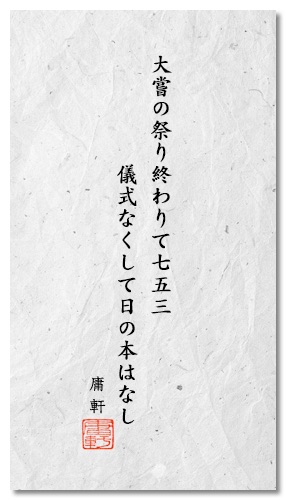 大嘗の祭り終わりて七五三
儀式なくして日の本はなし
庸軒
庸軒